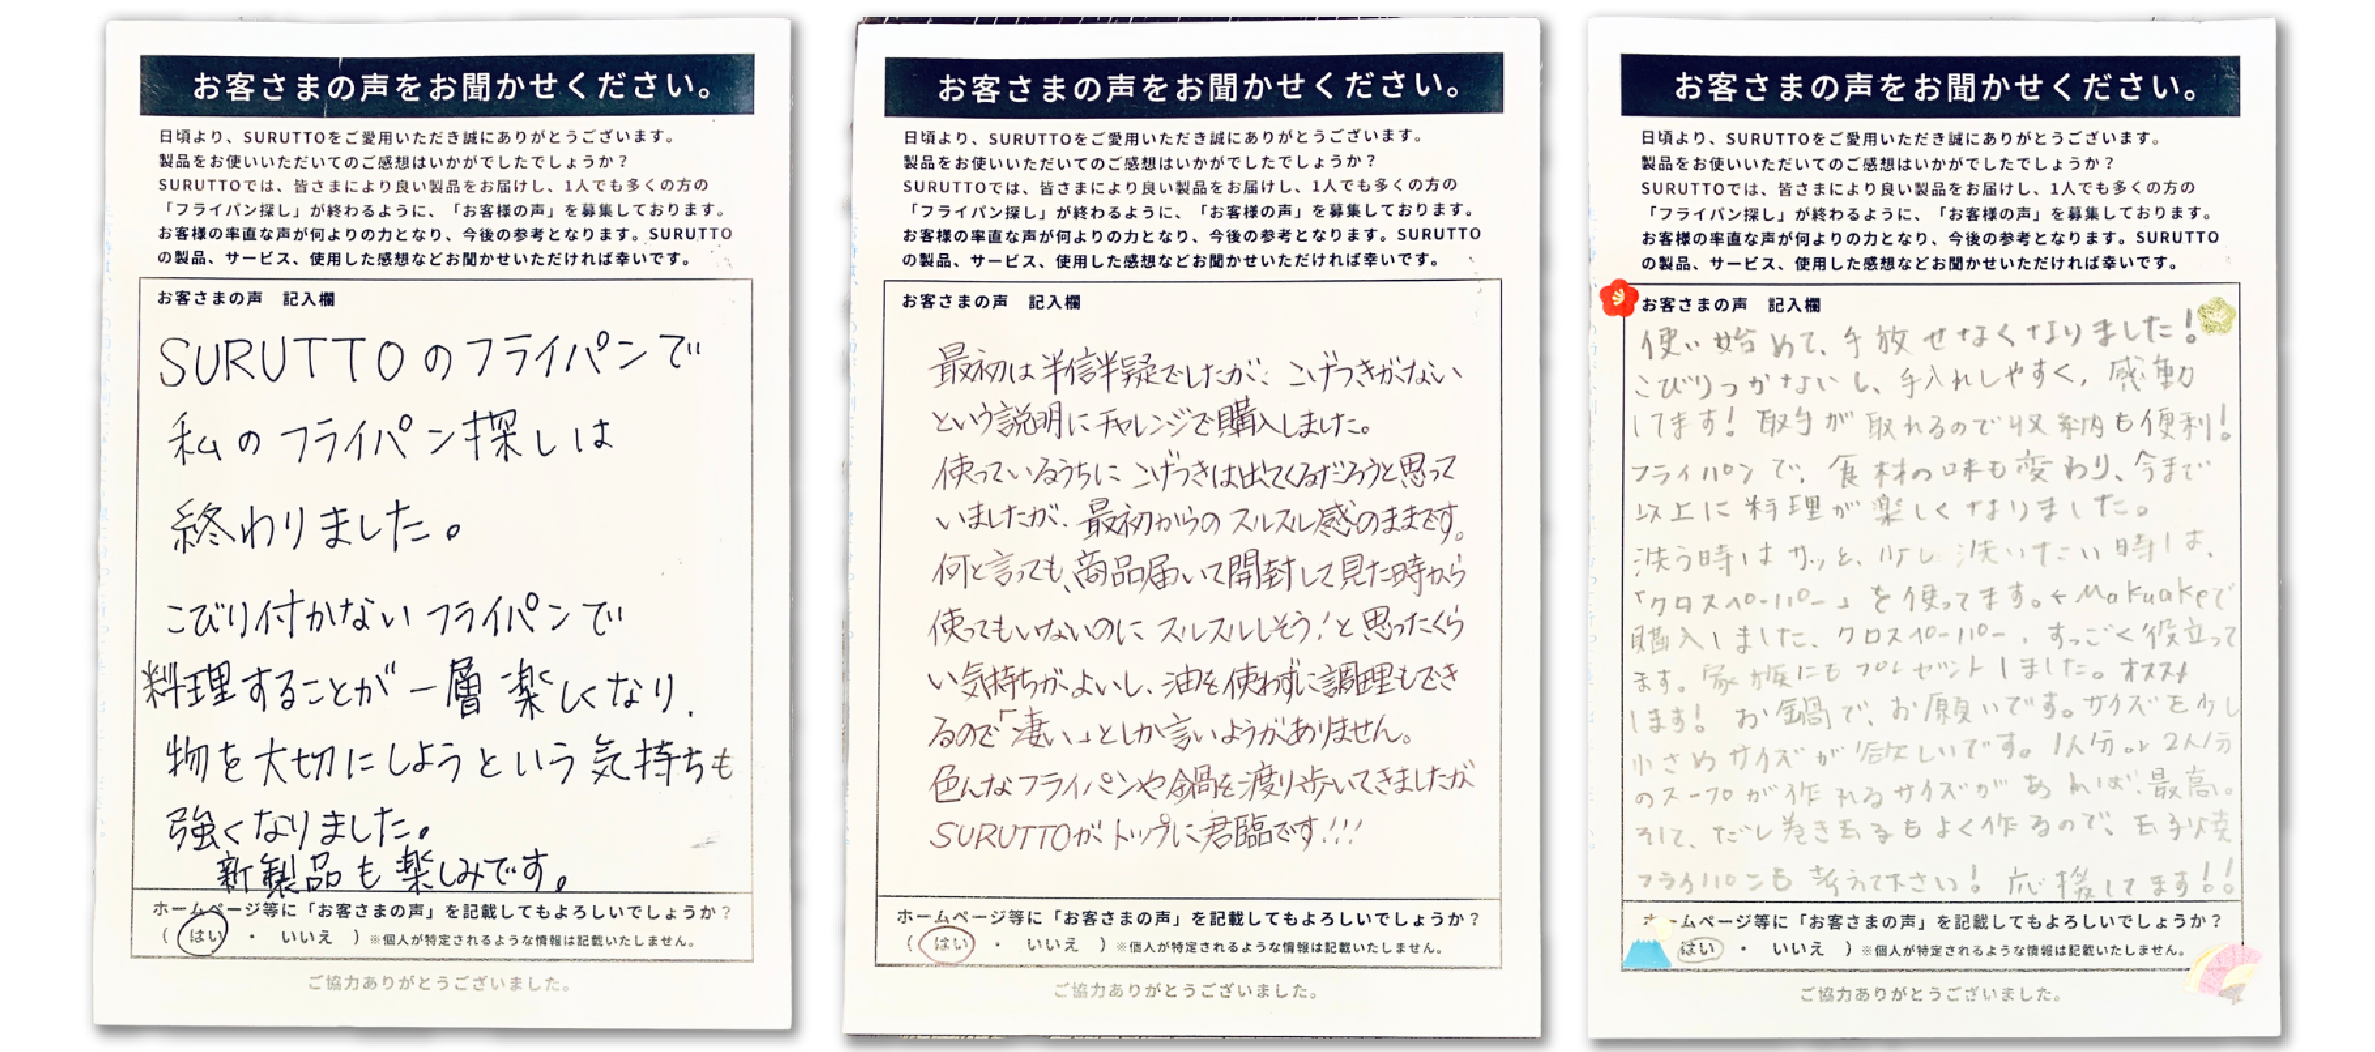 お客さまの声をお聞かせください。
日頃より、SURUTTOをご愛用いただき誠にありがとうございます。
製品をお使いいただいてのご感想はいかがでしたでしょうか？
SURUTTOでは、皆さまにより良い製品をお届けし、1人でも多くの方の
「フライパン探し」が終わるように、「お客様の声」を募集しております。
お客様の率直な声が何よりの力となり、今後の参考となります。SURUTTO
の製品、サービス、使用した感想などお聞かせいただければ幸いです。
お客さまの声　記入欄
SURUTTOのフライパンで
私のフライパン探しは
終わりました。
こびり付かないフライパンで
料理することが一層楽しくなり、
物を大切にしようという気持ちも
強くなりました。
新製品も楽しみです。
ホームページ等に「お客さまの声」を記載してもよろしいでしょうか？
（ はい ・ いいえ ）※個人が特定されるような情報は記載いたしません。
ご協力ありがとうございました。
お客さまの声をお聞かせください。
日頃より、SURUTTOをご愛用いただき誠にありがとうございます。
製品をお使いいただいてのご感想はいかがでしたでしょうか？
SURUTTOでは、皆さまにより良い製品をお届けし、1人でも多くの方の
「フライパン探し」が終わるように、「お客様の声」を募集しております。
お客様の率直な声が何よりの力となり、今後の参考となります。SURUTTO
の製品、サービス、使用した感想などお聞かせいただければ幸いです。
お客さまの声　記入欄
最初は半信半疑でしたが、こげつきがない
という説明にチャレンジで購入しました。
使っているうちにこげつきは出てくるだろうと思って
いましたが、最初からのスルスル感のままです。
何と言っても、商品届いて開封して見た時から
使ってもいないのにスルスルしそう！と思ったくら
い気持ちがよいし、油を使わずに調理もでき
るので「凄い」としか言いようがありません。
色んなフライパンや鍋を渡り歩いてきましたが
SURUTTOがトップに君臨です!!!
ホームページ等に「お客さまの声」を記載してもよろしいでしょうか？
（ はい ・ いいえ ）※個人が特定されるような情報は記載いたしません。
ご協力ありがとうございました。
お客さまの声をお聞かせください。
日頃より、SURUTTOをご愛用いただき誠にありがとうございます。
製品をお使いいただいてのご感想はいかがでしたでしょうか？
SURUTTOでは、皆さまにより良い製品をお届けし、1人でも多くの方の
「フライパン探し」が終わるように、「お客様の声」を募集しております。
お客様の率直な声が何よりの力となり、今後の参考となります。SURUTTO
の製品、サービス、使用した感想などお聞かせいただければ幸いです。
お客さまの声　記入欄
使い始めて、手放せなくなりました！
こびりつかないし、手入れしやすく、感動
してます！取手が取れるので収納も便利！
フライパンで、食材の味も変わり、今まで
以上に料理が楽しくなりました。
洗う時はサッと、少し洗いたい時は、
「クロスペーパー」を使ってます。←Makuakeで
購入しました、クロスペーパー、すっごく役立って
ます。家族にもプレゼントしました。オススメ
します！お鍋で、お願いです。サイズを少し
小さめサイズが欲しいです。1人分or2人分
のスープが作れるサイズがあれば、最高。
そして、だし巻き玉子もよく作るので、玉子焼
フライパンも考えて下さい！応援してます!!
ホームページ等に「お客さまの声」を記載してもよろしいでしょうか？
はい ・ いいえ ）※個人が特定されるような情報は記載いたしません。
ご協力ありがとうございました。